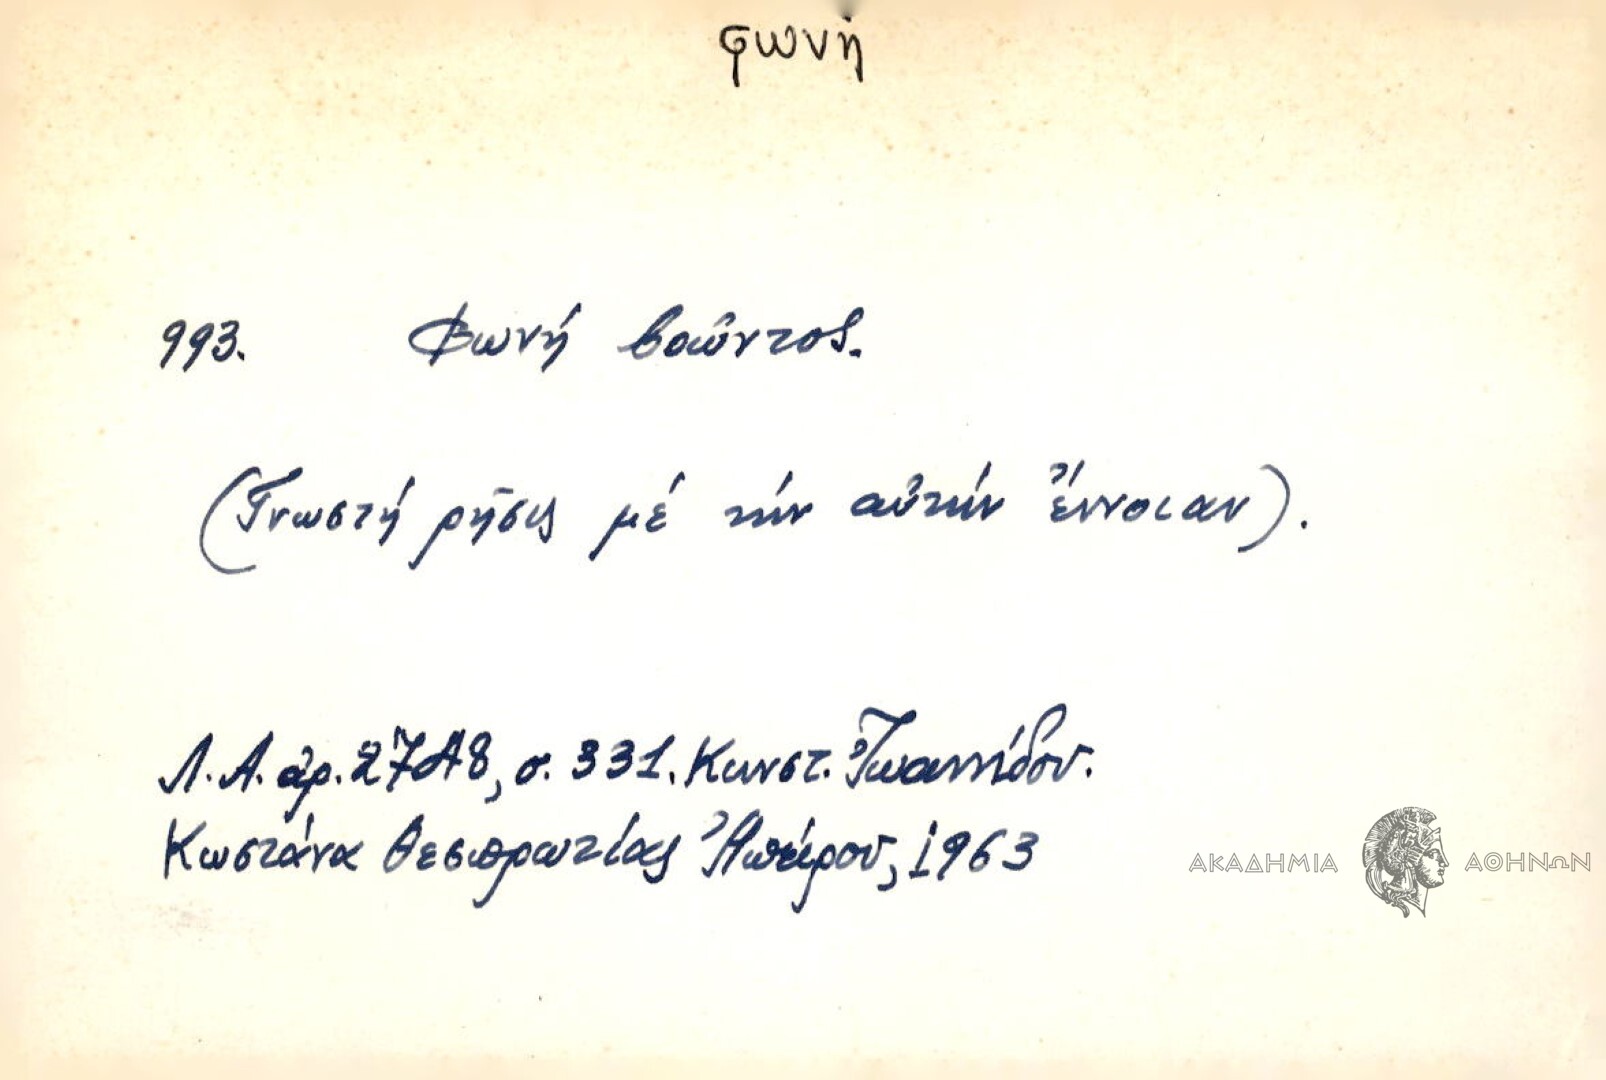 φωνή
993. Φωνή βοῶντος.
(Γνωστή ρῆσις μέ τήν αὐτήν ἔννοιαν).
Λ.Α. ἀρ. 2748, σ. 331. Κωνστ. Ἰωαννίδου.
Κωστάνα Θεσπρωτίας Ἠπείρου, 1963
ΑΚΑΔΗΜΙΑ ΑΘΗΝΩΝ